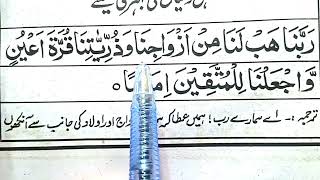 رَبَّنَا هَبْ لَنَا مِنْ اَزْوَاجِنَا وَذُرِّيّٰتِنَا قُرَّةَ اَعْيُنٍ
وَّاجْعَلْنَا لِلْمُتَّقِيْنَ اِمَامًا
ترجمہ :۔ اے ہمارے رب! ہمیں عطا کر ہماری ازواج اور اولاد کی جانب سے آنکھوں